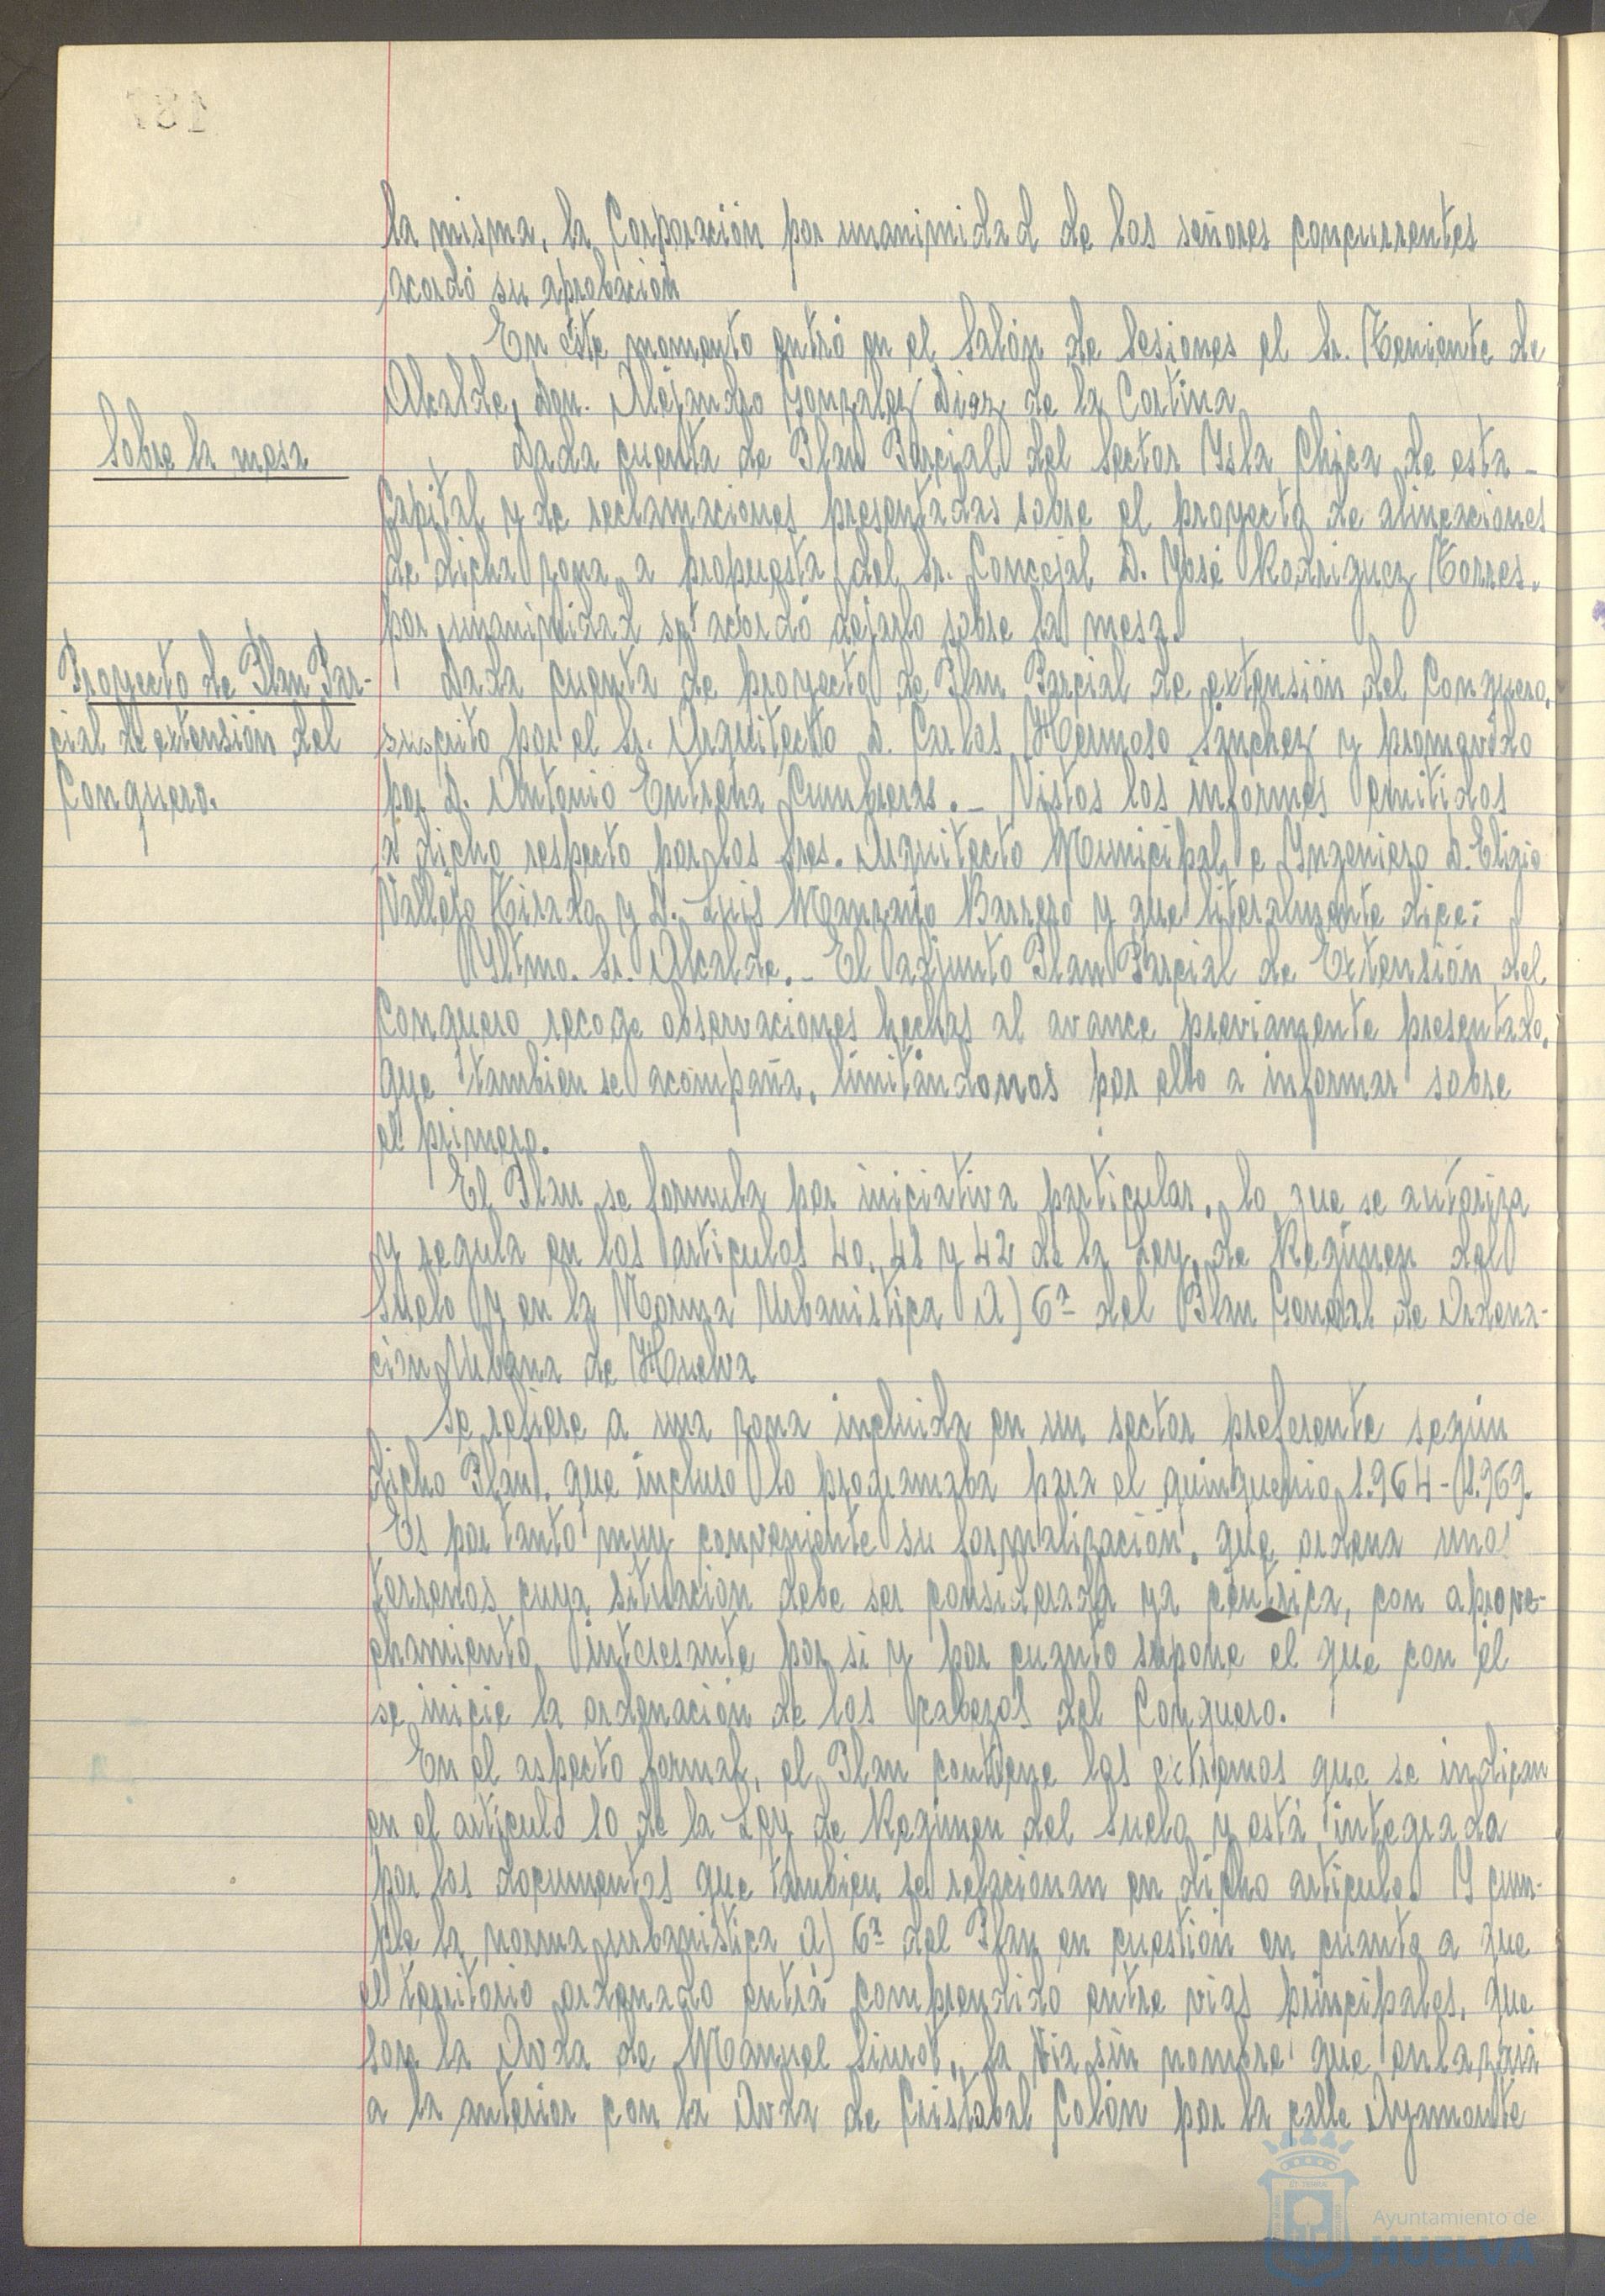 la misma, la Corporación por unanimidad de los señores concurrentes
acordó su aprobación
En éste momento entró en el Salón de Sesiones el Sr. Teniente de
Alcalde, Don. Alejandro Gonzalez Diaz de la Cortina
Sobre la mesa
Dada cuenta de Plan Parcial del Sector Ysla Chica de esta
Capital y de reclamaciones presentadas sobre el proyecto de alineaciones
de dicha zona, a propuesta del Sr. Concejal D. José Rodriguez Torres.
por unanimidad se acordó dejarlo sobre la mesa.
Proyecto de Plan Par-
cial de extensión del
Conquero.
Dada cuenta de proyecto de Plan Parcial de extensión del Conquero,
suscrito por el Sr. Arquitecto D. Carlos Hermoso Sanchez y promovido
por D. Antonio Entrena Cumbreras.- Vistos los informes emitidos
a dicho respecto por los Sres. Arquitecto Municipal e Yngeniero D. Eligio
Vallejo Tirado y D. Luis Manzano Barrero y que literalmente dice:
Yltmo. Sr. Alcalde.- El adjunto Plan Parcial de Extensión del
Conquero recoge observaciones hechas al avance previamente presentado,
que tambien se acompaña, limitandonos por ello a informar sobre
el primero.
El Plan se formula por iniciativa particular, lo que se autoriza
y regula en los articulos 40, 41 y 42 de la Ley de Regimen del
Suelo y en la Norma Urbanistica A) 6ª del Plan General de Ordena-
cion Urbana de Huelva
Se refiere a una zona incluida en un sector preferente según
dicho Plan, que incluso lo programaba para el quinquenio 1.964-1.969.
Es por tanto muy conveniente su formalización, que ordena unos
terrenos cuya situacion debe ser considerada ya céntrica, con aprove-
chamiento interesante por si y por cuanto supone el que con él
se inicie la ordenación de los cabezos del Conquero.
En el aspecto formal, el Plan contiene los extremos que se indican
en el articulo 10 de la Ley de Regimen del Suelo y está integrada
por los documentos que tambien se relacionan en dicho articulo. Y cum-
ple la norma urbanistica A) 6ª del Plan en cuestión en cuanto a que
el territorio ordenado entra comprendido entre vias principales, que
son la Avda de Manuel Siurot, la via sin nombre que enlazara
a la anterior con la Avda de Cristobal Colón por la calle Ayamonte
Ayuntamiento de
HUELVA